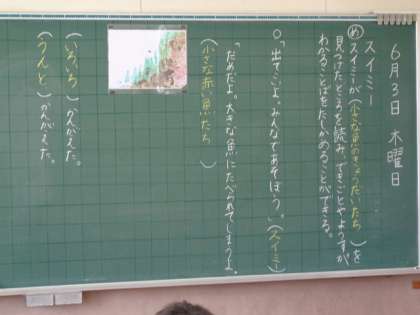 6月3日 木曜日
スイミー
め スイミーが（小さな魚のきょうだいたち）を
見つけたところを読み、できごとやようすが
わかることばをたしかめることができる。
○「出てこいよ。みんなであそぼう。」（スイミー）
「だめだよ。大きな魚にたべられてしまうよ。」
（小さな赤い魚たち）
（いろいろ）かんがえた。
（うんと）かんがえた。